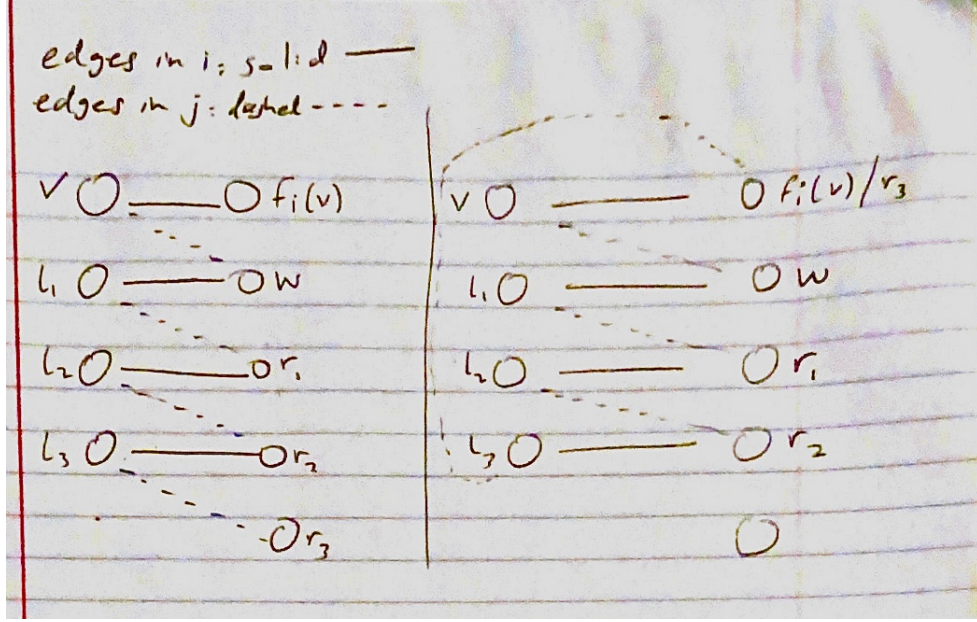 edges in i: solid
edges in j: dashed
v fᵢ(v)
l₁ w
l₂ r₁
l₃ r₂
r₃
v fᵢ(v)/r₃
l₁ w
l₂ r₁
l₃ r₂